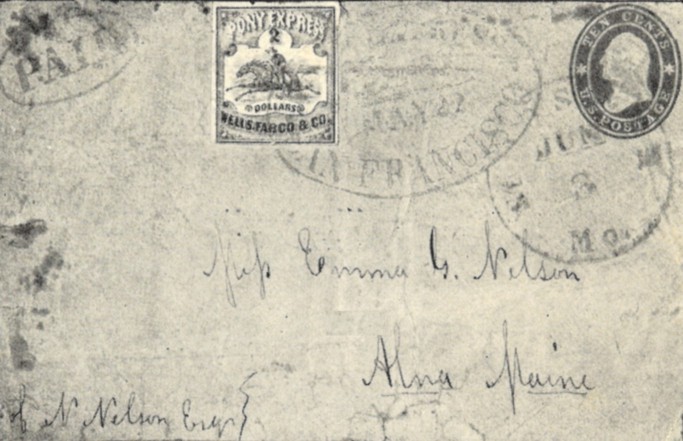 PAID
PONY EXPRESS
2
DOLLARS
WELLS, FARGO & CO.
MAY 22
SAN FRANCISCO
TEN CENTS
U.S. POSTAGE
JUN
3
MO.
Miss Emma G. Nelson
Alna Maine
N. Nelson Esqr